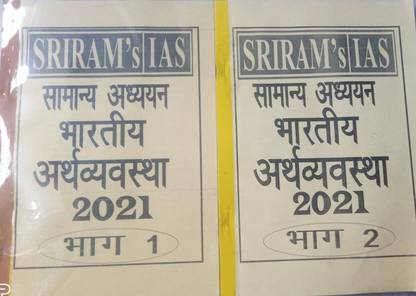 SRIRAM's IAS
सामान्य अध्ययन
भारतीय
अर्थव्यवस्था
2021
भाग 1
SRIRAM's IAS
सामान्य अध्ययन
भारतीय
अर्थव्यवस्था
2021
भाग 2